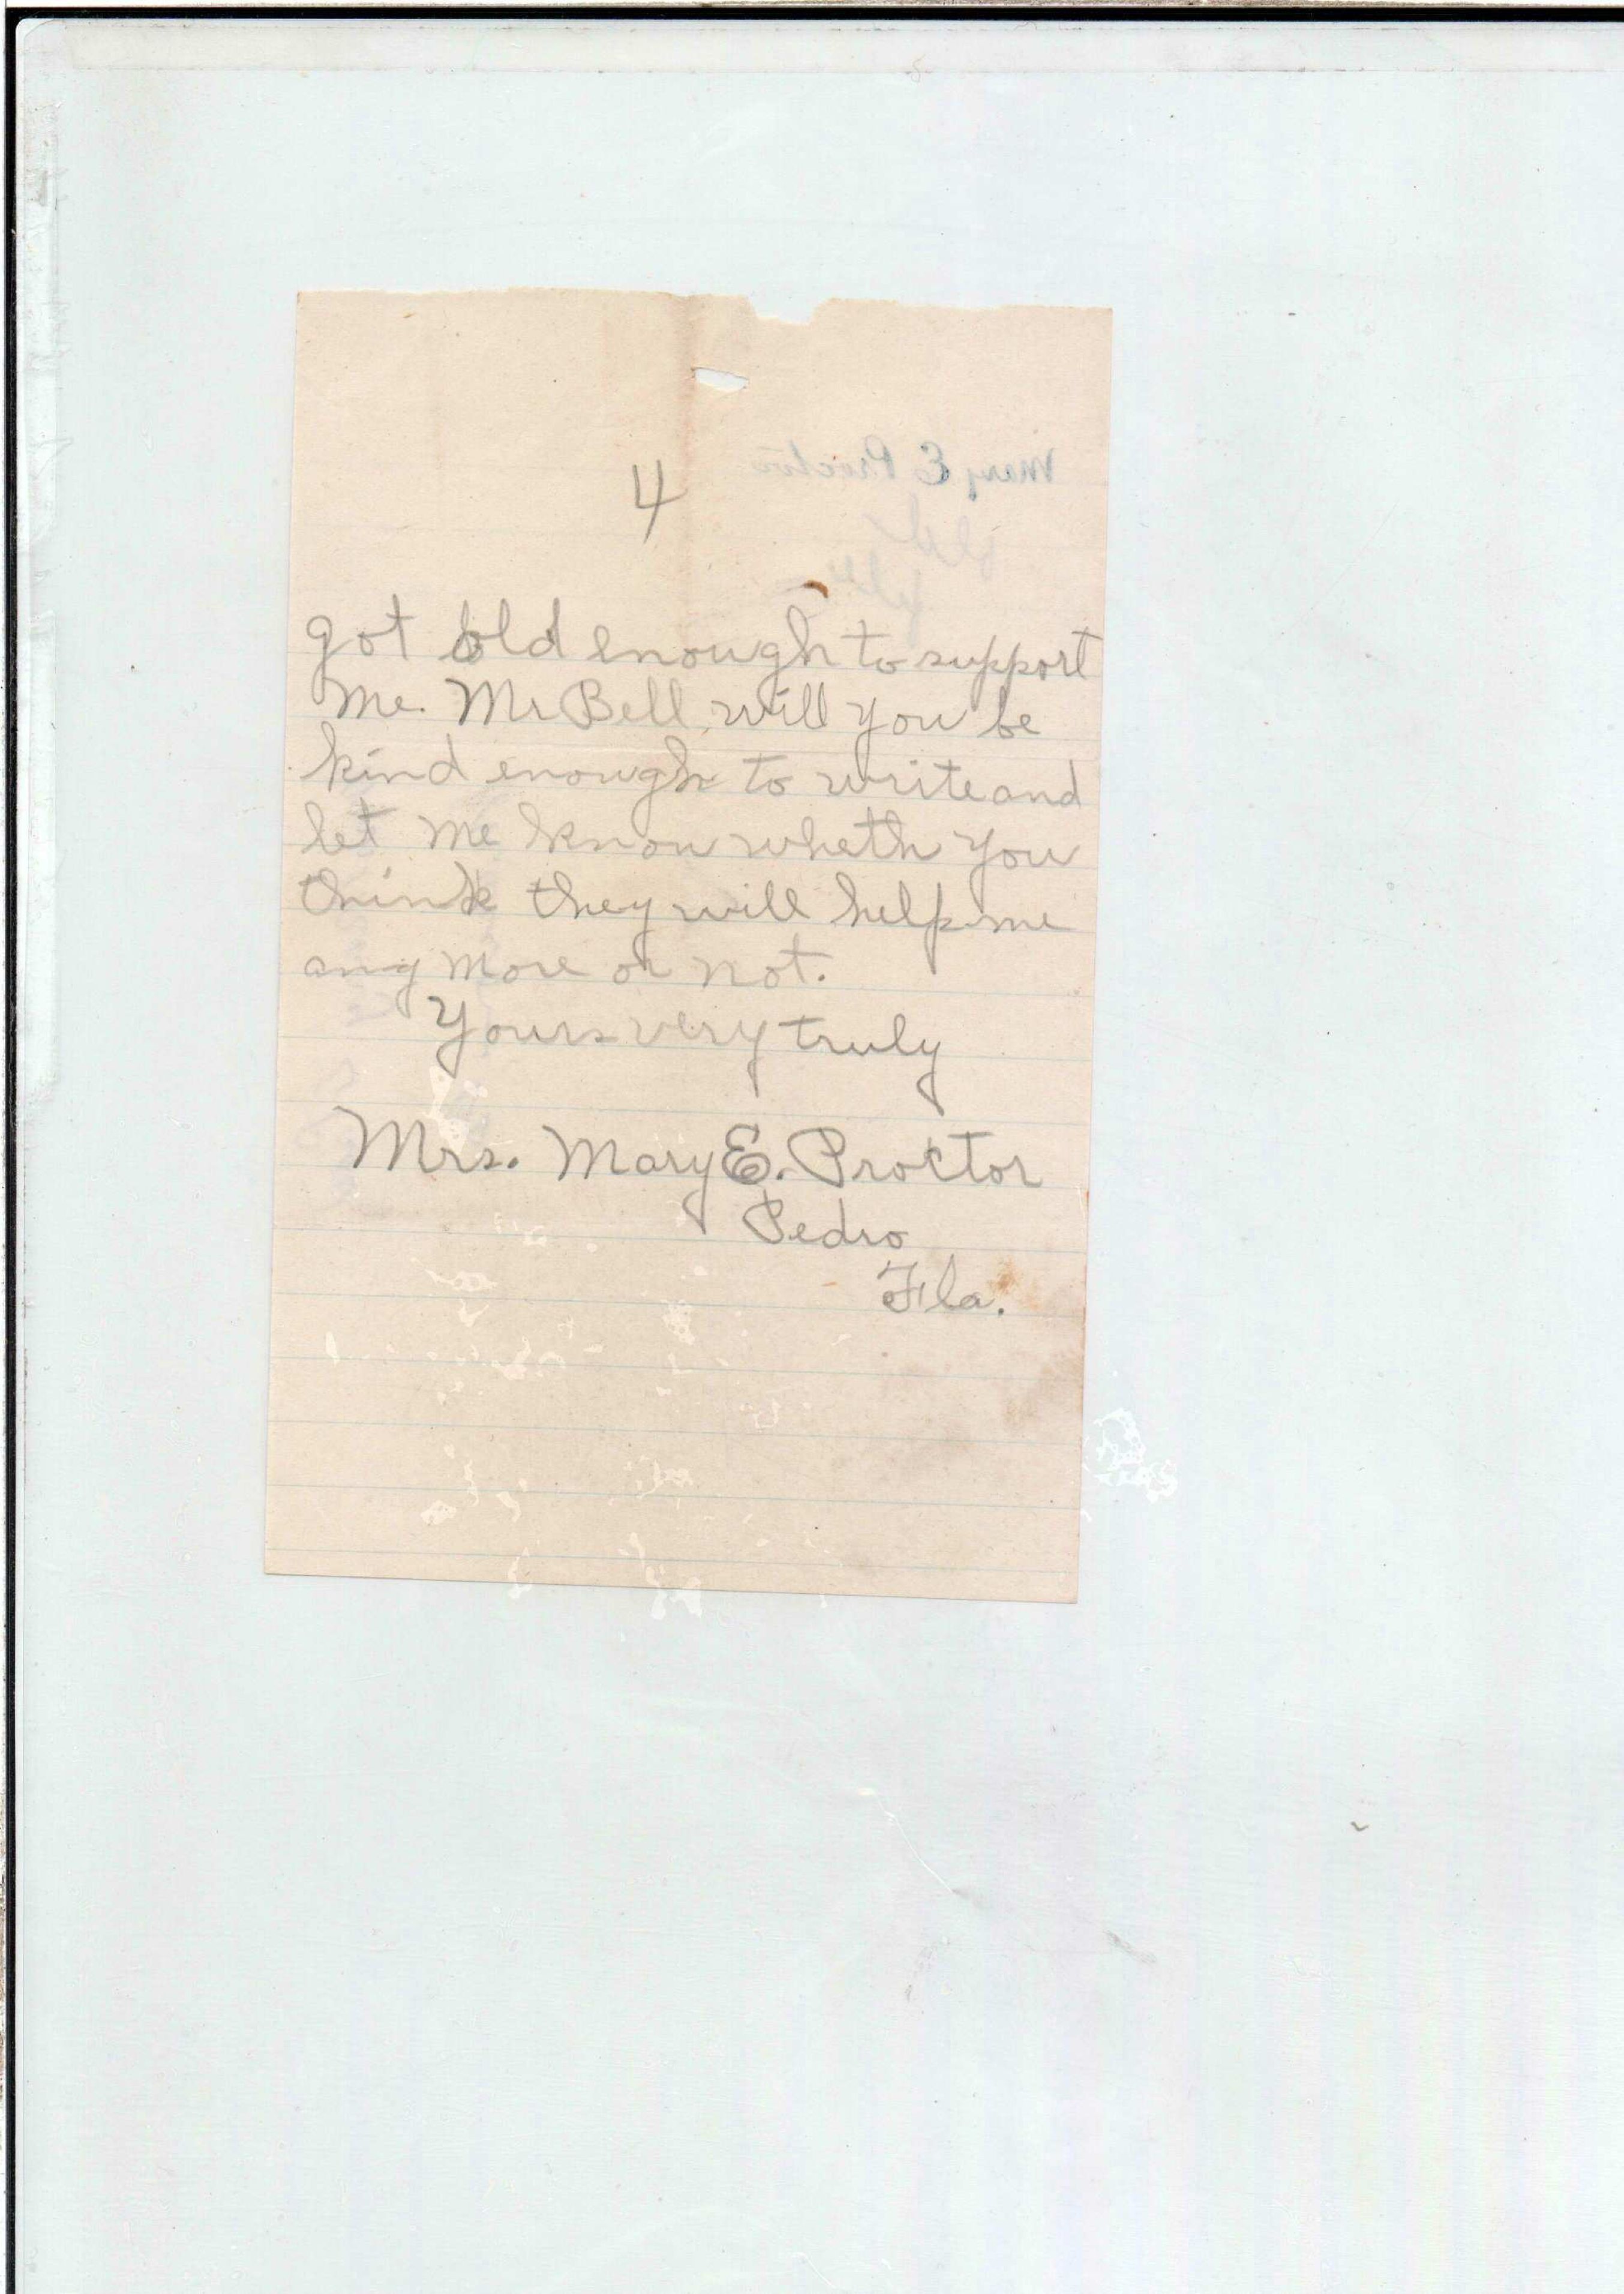 4
got old enough to support
me. Mr Bell will you be
kind enough to write and
let me know wheth you
think they will help me
any more or not.
Yours very truly
Mrs. Mary E. Proctor
Pedro
Fla.
Mary E Proctor